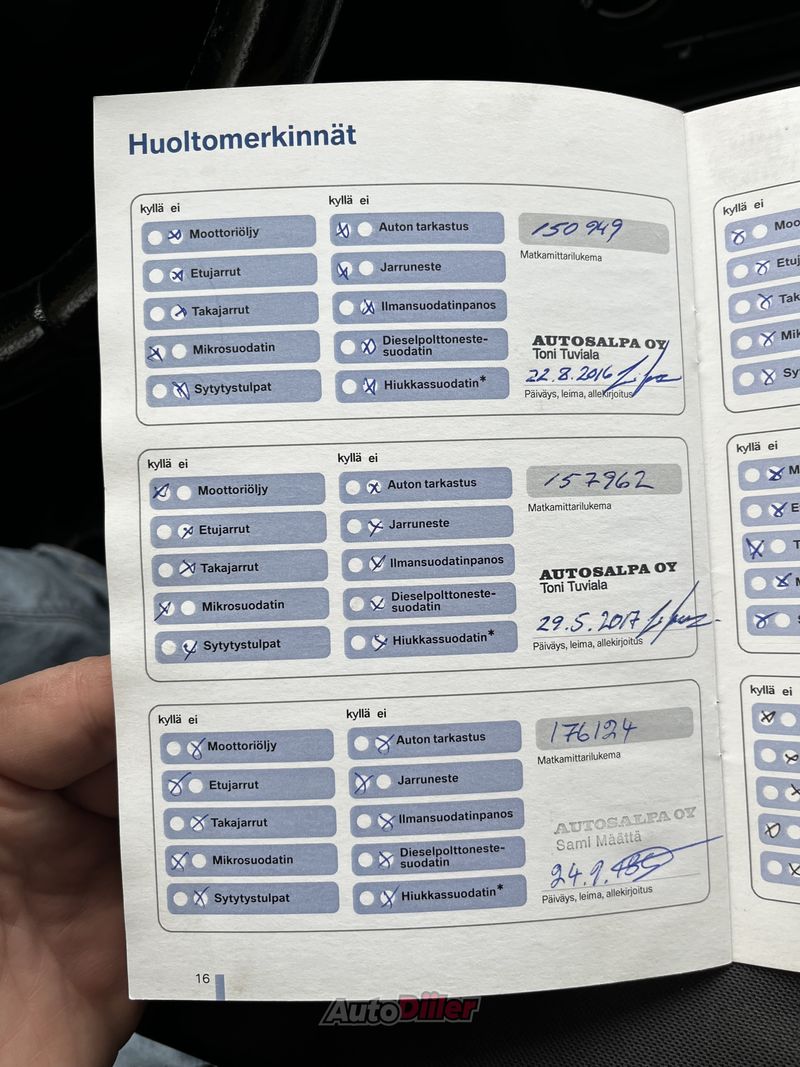 Huoltomerkinnät
kyllä ei
Moottoriöljy
Etujarrut
Takajarrut
Mikrosuodatin
Sytytystulpat
kyllä ei
Auton tarkastus
Jarruneste
Ilmansuodatinpanos
Dieselpolttoneste-
suodatin
Hiukkassuodatin*
150 949
Matkamittarilukema
AUTOSALPA OY
Toni Tuviala
22.8.2016
Päiväys, leima, allekirjoitus
kyllä ei
Moottoriöljy
Etujarrut
Takajarrut
Mikrosuodatin
Sytytystulpat
kyllä ei
Auton tarkastus
Jarruneste
Ilmansuodatinpanos
Dieselpolttoneste-
suodatin
Hiukkassuodatin*
157962
Matkamittarilukema
AUTOSALPA OY
Toni Tuviala
29.5.2017
Päiväys, leima, allekirjoitus
kyllä ei
Moottoriöljy
Etujarrut
Takajarrut
Mikrosuodatin
Sytytystulpat
kyllä ei
Auton tarkastus
Jarruneste
Ilmansuodatinpanos
Dieselpolttoneste-
suodatin
Hiukkassuodatin*
176124
Matkamittarilukema
AUTOSALPA OY
Sami Määttä
24.9.
Päiväys, leima, allekirjoitus
16
kyllä ei
Moo
Etuj
Tak
Mik
Sy
kyllä ei
M
E
T
M
kyllä ei
AutoDiller